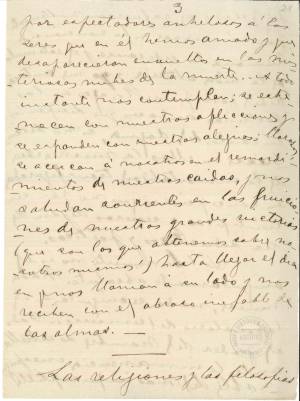 3
por espectadores anhelosos á los
seres que en él hemos amado y que
desaparecieron envueltos en las mis-
teriosas nubes de la muerte... A todo
instante nos contemplan; se estre-
mecen con nuestras aflicciones y
se expanden con nuestras alegrías; llorando
se acercan á nosotros en el remordi-
miento de nuestras caídas, y nos
saludan sonrientes en las fruicio-
nes de nuestras grandes victorias
(que son las que obtenemos sobre no-
sotros mismos!) hasta llegar el día
en que nos llaman á su lado y nos
reciben con el abrazo inefable de
las almas. —
Las religiones y las filosofías